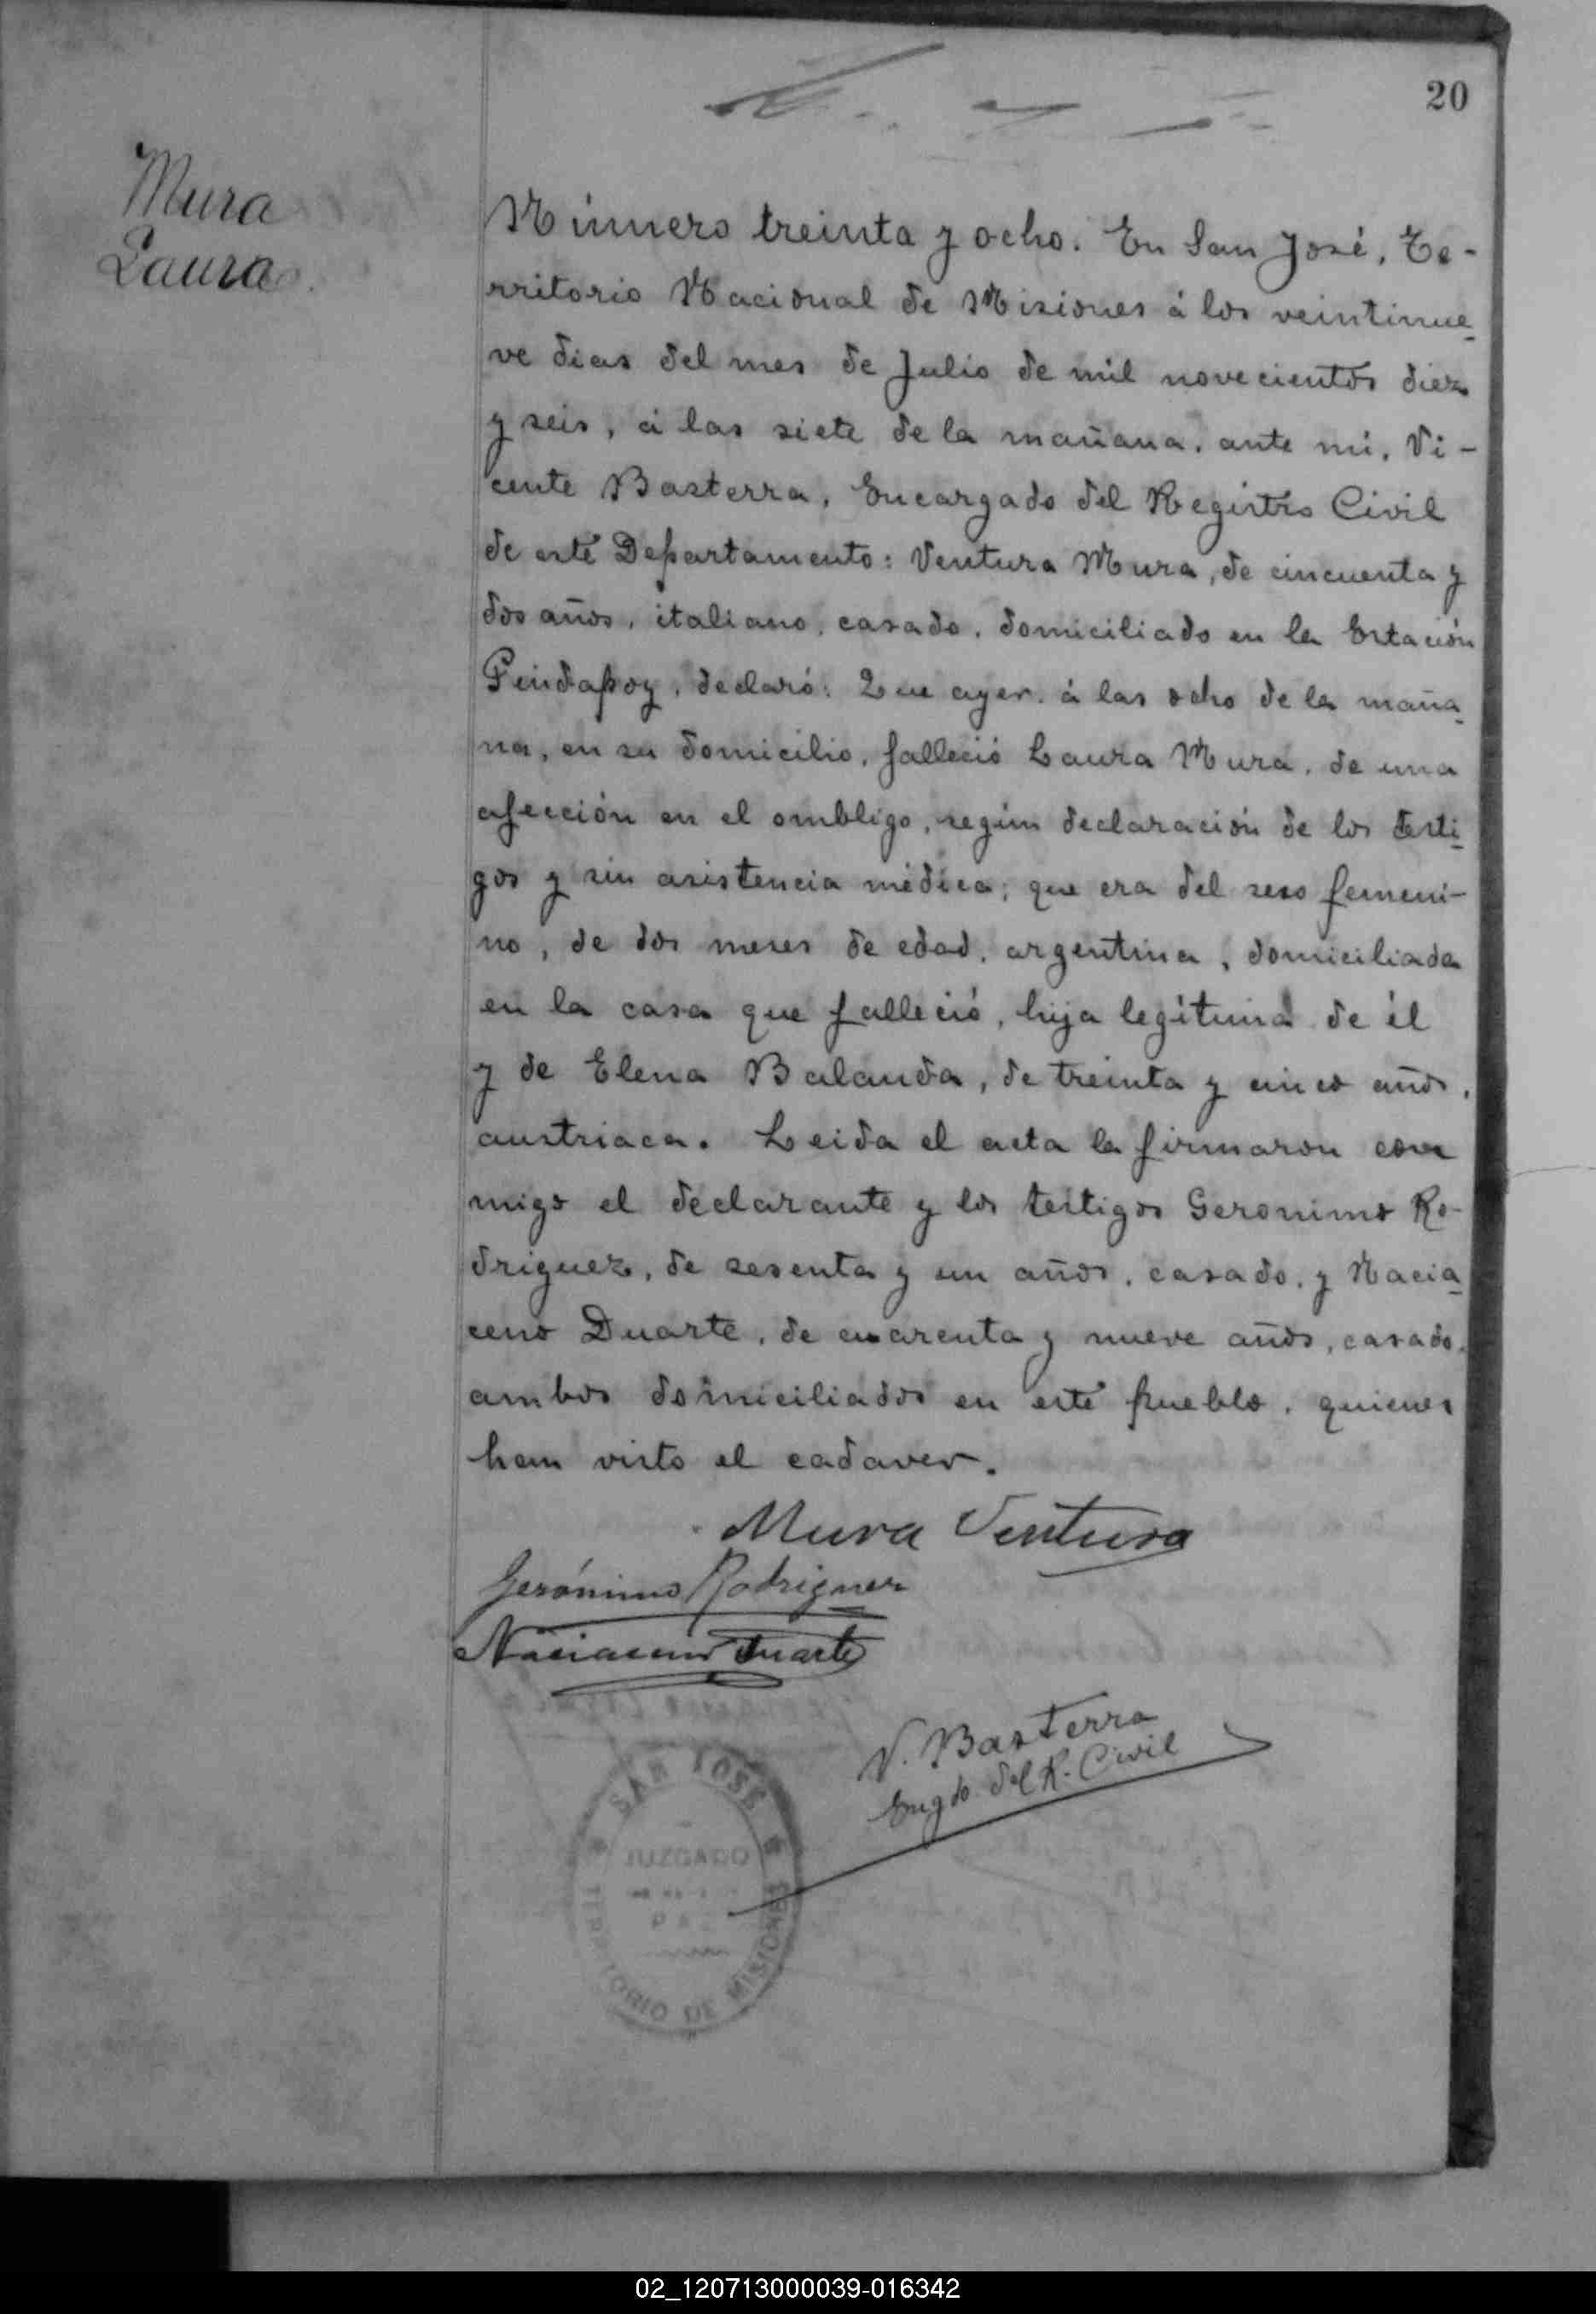 20
Mura
Laura.
Número treinta y ocho. En San José, Te-
rritorio Nacional de Misiones á los veintinue
ve dias del mes de Julio de mil novecientos diez
y seis, á las siete de la mañana, ante mi, Vi-
cente Basterra, Encargado del Registro Civil
de esté Departamento: Ventura Mura, de cincuenta y
dos años, italiano, casado, domiciliado en la Estación
Pindapoy, declaró: Que ayer, á las ocho de la maña
na, en su domicilio, falleció Laura Mura, de una
afección en el ombligo, según declaración de los testi
gos y sin asistencia médica; que era del sexo femeni-
no, de dos meses de edad, argentina, domiciliada
en la casa que falleció, hija legítima de él
y de Elena Balanda, de treinta y cinco años,
austriaca. Leida el acta la firmaron con
migo el declarante y los testigos Geronimo Ro-
driguez, de sesenta y un años, casado, y Nacia
ceno Duarte, de cuarenta y nueve años, casado,
ambos domiciliados en esté pueblo, quienes
han visto el cadaver.
Mura Ventura
Gerónimo Rodriguez
Naciaceno Duarte
V. Basterra
Engdo del R. Civil
SAN JOSÉ
JUZGADO
PAZ
TERRITORIO DE MISIONES
02_120713000039-016342